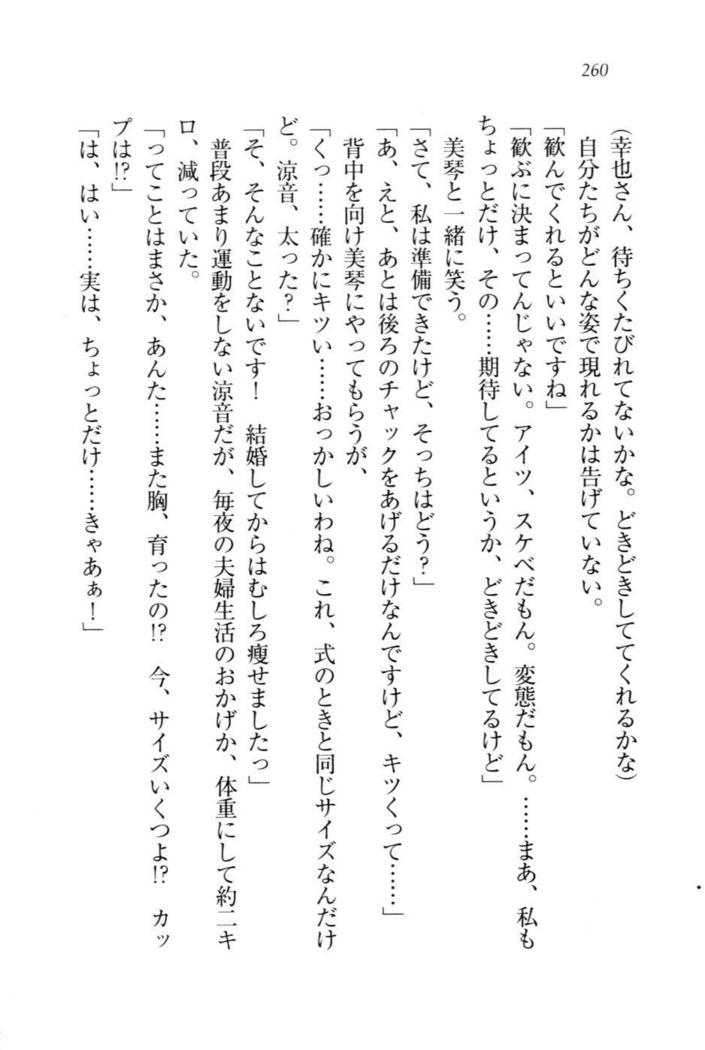 260
(幸也さん、待ちくたびれてないかな。どきどきしててくれるかな)
自分たちがどんな姿で現れるかは告げていない。
「歓んでくれるといいですね」
「歓ぶに決まってんじゃない。アイツ、スケベだもん。変態だもん。……まあ、私も
ちょっとだけ、その……期待してるというか、どきどきしてるけど」
美琴と一緒に笑う。
「さて、私は準備できたけど、そっちはどう?」
「あ、えと、あとは後ろのチャックをあげるだけなんですけど、キツくって……」
背中を向け美琴にやってもらうが、
「くっ……確かにキツい……おっかしいわね。これ、式のときと同じサイズなんだけ
ど。涼音、太った?」
「そ、そんなことないです! 結婚してからはむしろ痩せましたっ」
普段あまり運動をしない涼音だが、毎夜の夫婦生活のおかげか、体重にして約二キ
ロ、減っていた。
「ってことはまさか、あんた……また胸、育ったの!? 今、サイズいくつよ!? カッ
プは!?」
「は、はい……実は、ちょっとだけ……きゃあぁ!」